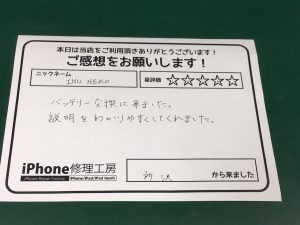 本日は当店をご利用頂きありがとうございます!
ご感想をお願いします!
ニックネーム
INU NEKO
星評価 ☆☆☆☆☆
バッテリー交換に来ました。
説明をわかりやすくしてくれました。
iPhone修理工房
iPhone Repair Factory
iPhone/iPad/iPod touch
所沢
から来ました